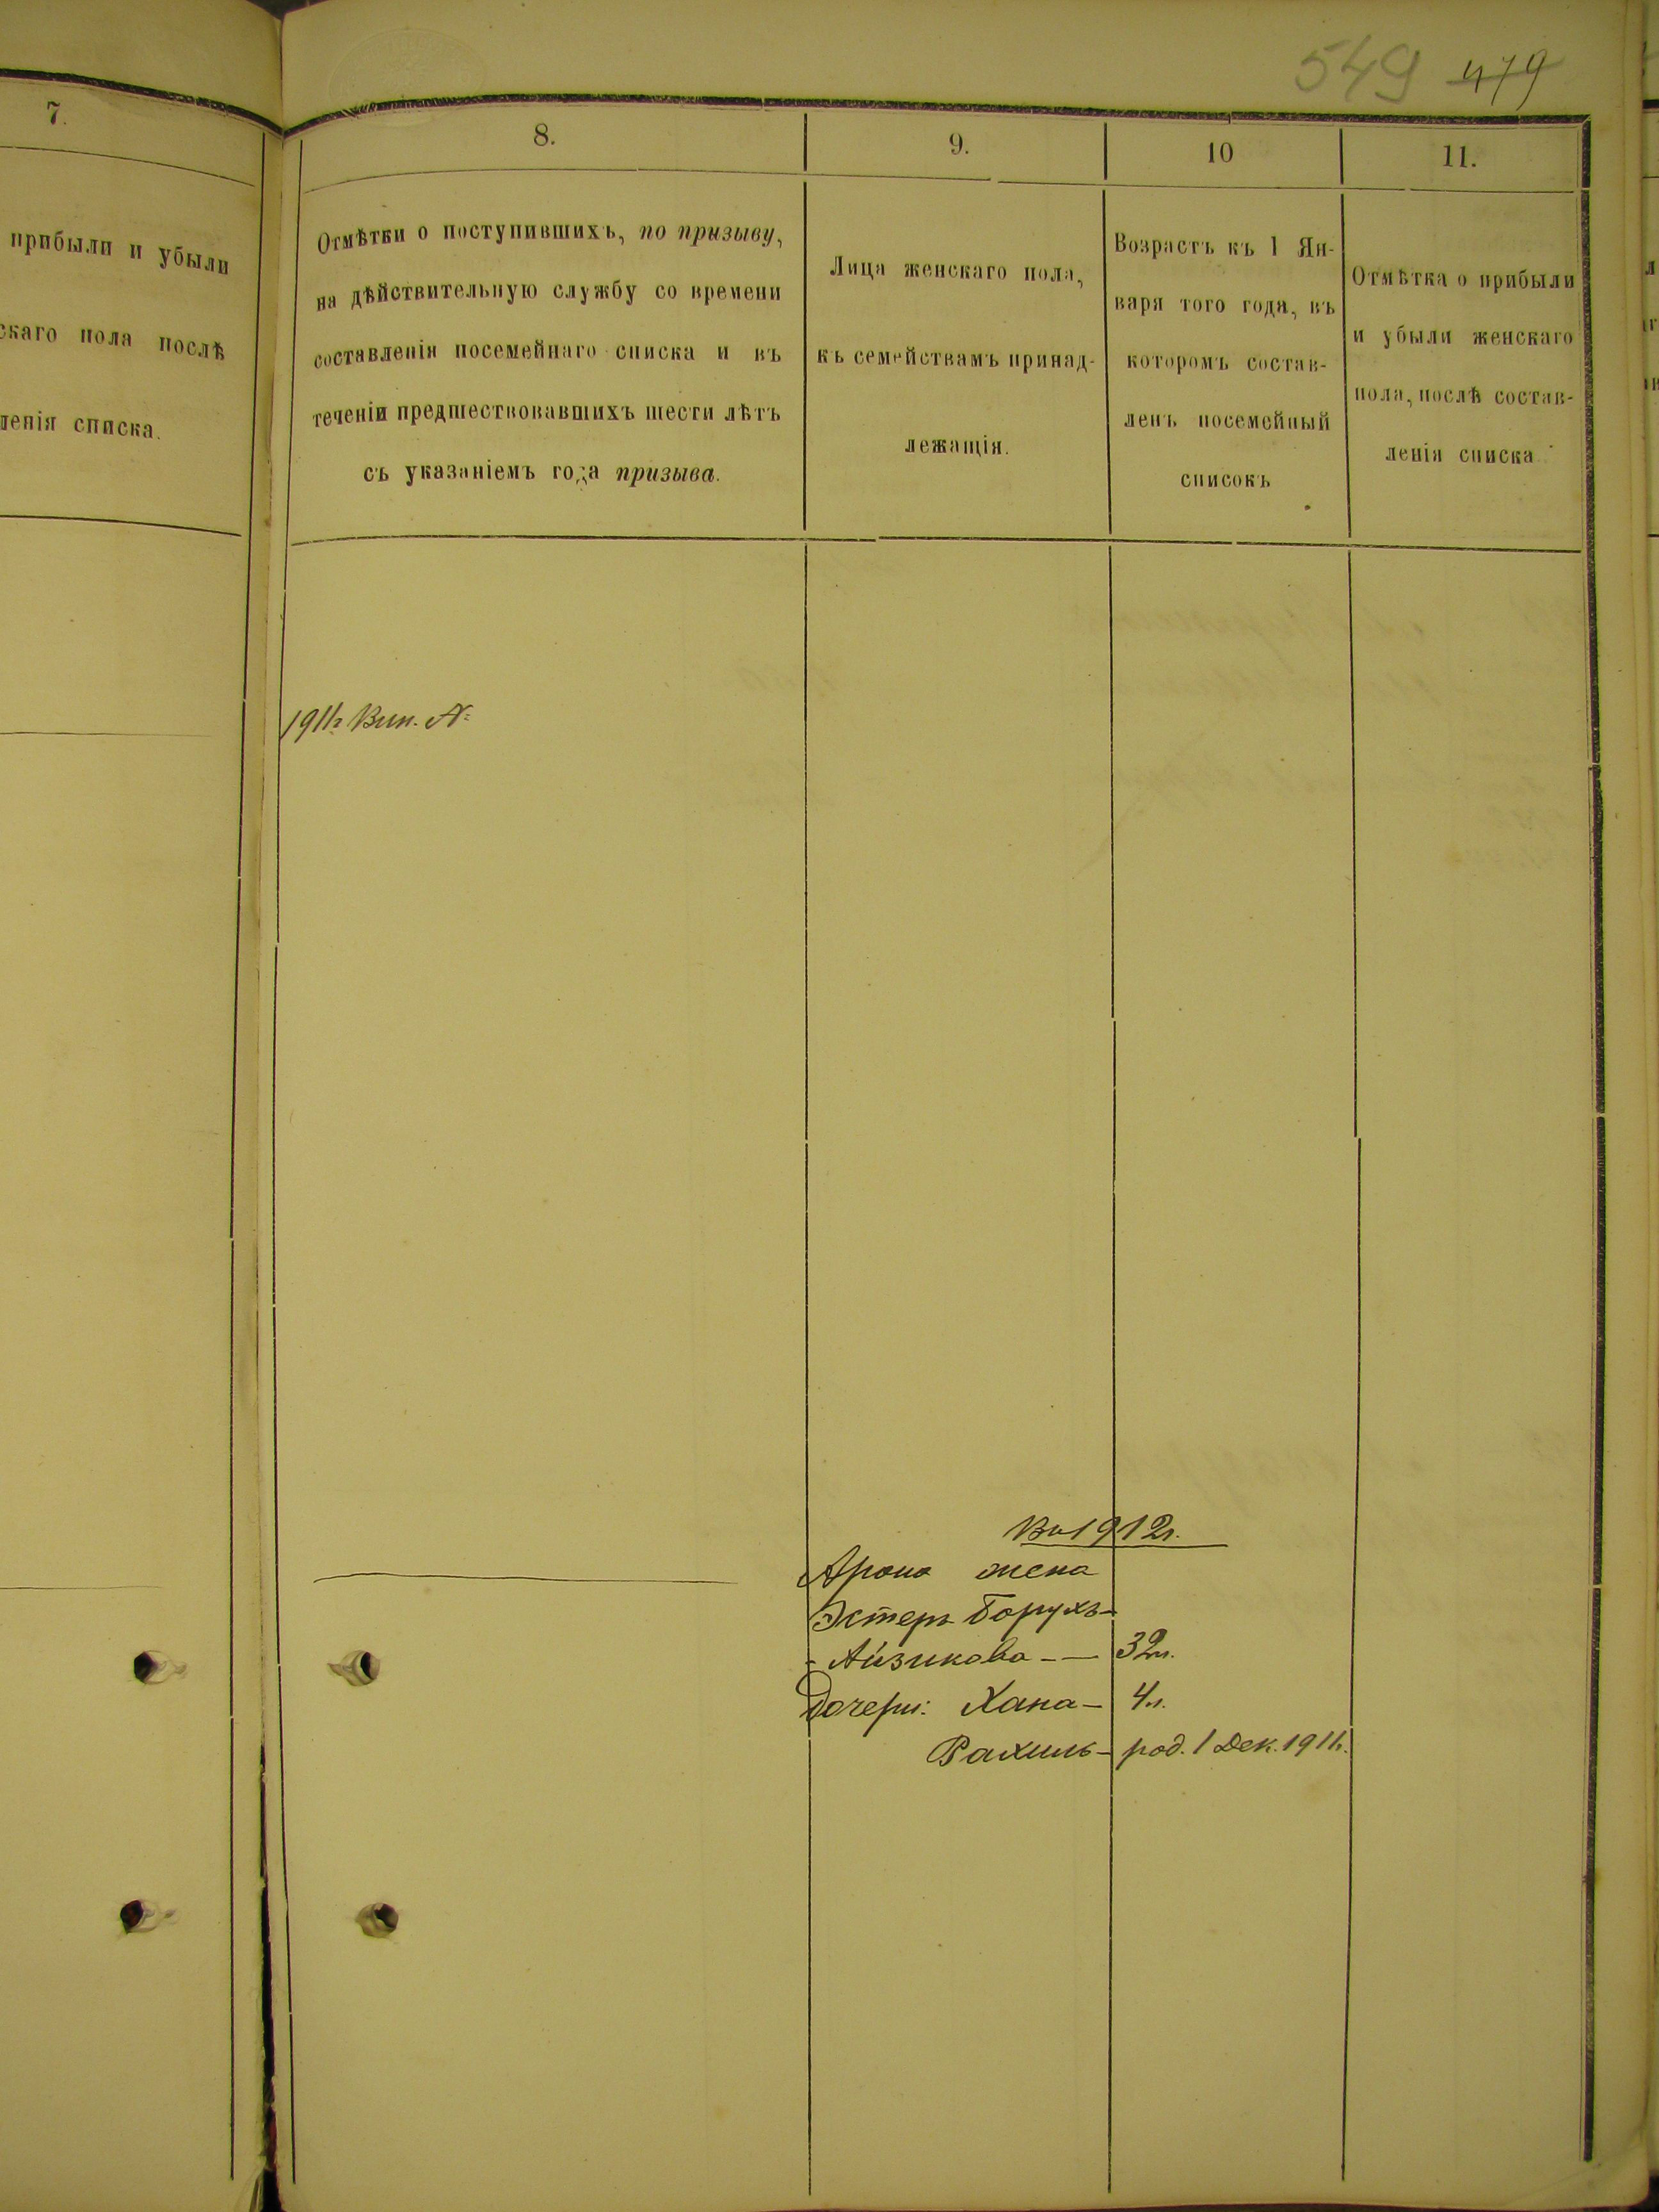 549 479
7.
прибыли и убыли
скаго пола послѣ
ленія списка.
8.
Отмѣтки о поступившихъ, по призыву,
на дѣйствительную службу со времени
составленія посемейнаго списка и въ
теченіи предшествовавшихъ шести лѣтъ
съ указаніемъ года призыва.
9.
Лица женскаго пола,
къ семействамъ принад-
лежащія.
10
Возрастъ къ 1 Ян-
варя того года, въ
которомъ состав-
ленъ посемейный
списокъ
11.
Отмѣтка о прибыли
и убыли женскаго
пола, послѣ состав-
ленія списка.
1911г
Въ 1912г.
Арона жена
Эстеръ Борухъ-
-Айзикова - — 32л.
Дочери: Хана — 4л.
Рахиль — род. 1 Дек. 1911г.